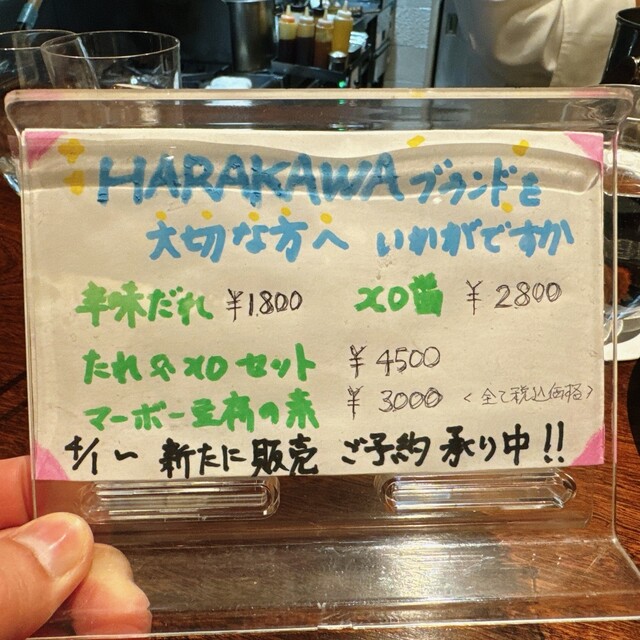 HARAKAWAブランドを
大切な方へ いかがですか
辛味だれ ¥1800 XO醤 ¥2800
たれ&XOセット ¥4500
マーボー豆腐の素 ¥3000 <全て税込価格>
4/1〜 新たに販売 ご予約承り中!!